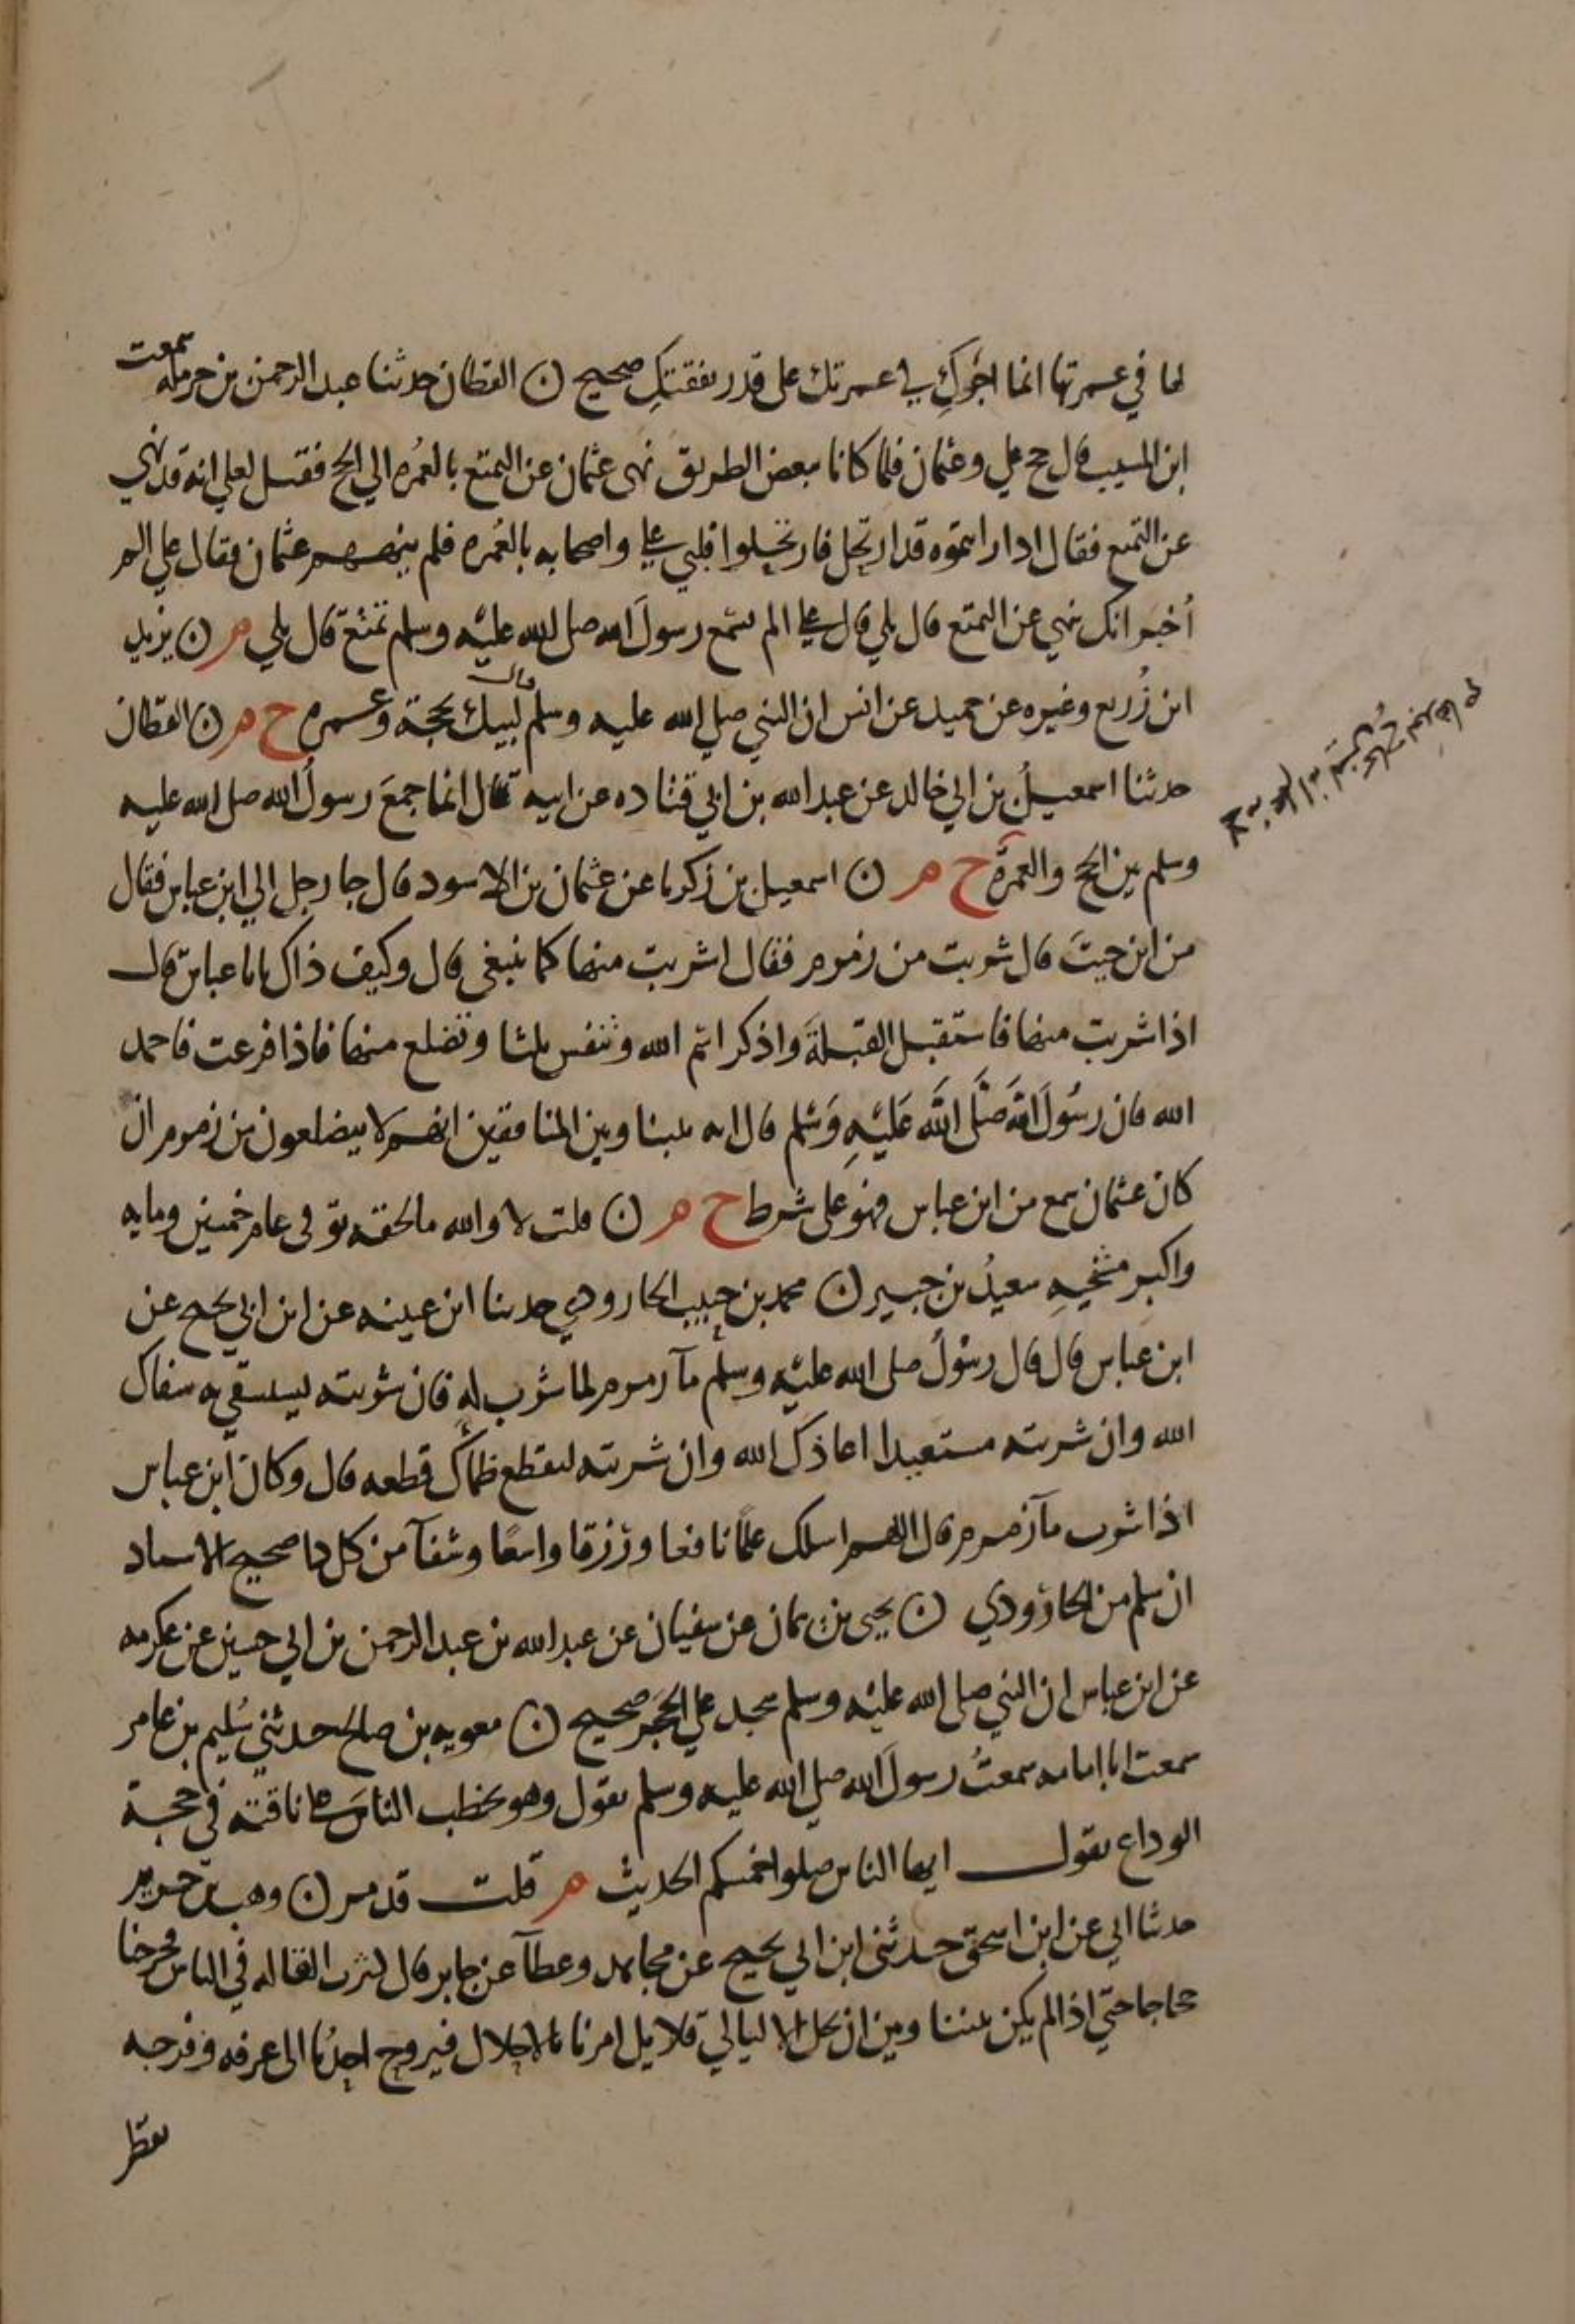 لها في عمرتها انما اجرك في عمرتك على قدر نفقتك صحيح ن القطان حدثنا عبد الرحمن بن حرمله سمعت
ابن المسيب قال حج علي وعثمان فلما كانا ببعض الطريق نهى عثمان عن التمتع بالعُمره الي الحج فقيل لعلي انه قد نهي
عن التمتع فقال اذا رايتموه قد ارتحل فارتحلوا فلبي علي واصحابه بالعُمره فلم ينههم عثمان فقال علي الم
أُخبَر انك تنهي عن التمتع قال بلي قال علي الم تسمع رسولَ الله صلى الله عليه وسلم تمتع قال بلي م ن يزيد
ابن زُريع وغيره عن حميد عن انس ان النبي صلي الله عليه وسلم قال لبيك بحجة وعمرة خ م ن القطان
حدثنا اسمعيلُ بن ابي خالد عن عبد الله بن ابي قتاده عن ابيه قال انما جمعَ رسولُ الله صلى الله عليه
وسلم بين الحج والعمرة خ م ن اسمعيل بن زكريا عن عثمان بن الاسود قال جا رجل الي ابن عباس فقال
من اين جيتَ قال شربت من زمزم فقال اشربت منها كما ينبغي قال وكيف ذاك يابا عباس قال
اذا شربت منها فاستقبل القبلةَ واذكر اسم الله وتنفس ثلثا وتضلع منها فاذا فرغت فاحمد
الله فان رسُولَ اللهِ صَلَّى اللَّه عَلَيْهِ وَسَلم قال ايه بيننا وبين المنافقين انهم لا يتضلعون من زمزم ان
كان عثمان سمع من ابن عباس فهو على شرط خ م ن قلت لا والله ما لحقه توفى عام خمسين ومايه
واكبر مشيخيهِ سعيدُ بن جبير ن محمد بن حبيب الجارودي حدثنا ابن عيينه عن ابن ابي نجيح عن
ابن عباس قال قال رسُولُ صلى الله عليه وسلم مآ زمزم لما شرب له فان شربته لتستشفي به شفاك
الله وان شربته مستعيذا اعاذك الله وان شربته ليقطع ظماك قطعه قال وكان ابن عباس
اذا شرب مآ زمزم قال اللهم اسلك علمًا نافعا ورزقا واسعًا وشفآ من كل دا صحيح الاسناد
ان سلم من الجارُودي ن يحيى بن يمان عن سفيان عن عبد الله بن عبد الرحمن بن ابي حسين عن عكرمه
عن ابن عباس ان النبي صلى الله عليه وسلم سجد علي الحَجَر صحيح ن معويه بن صالح حدثني سُليم بن عامر
سمعت ابا امامه سمعتُ رسولَ الله صلي الله عليه وسلم يقول وهو يخطب الناسَ على ناقته في حجة
الوداع يقول ايها الناس صلوا خمسكم الحديث م قلت قد مر ن وهب بن جرير
حدثنا ابي عن ابن اسحق حدثني ابن ابي نجيح عن مجاهد وعطآ عن جابر قال كثرت القاله في الناس فخرجنا
حجاجا حتي اذا لم يكن بيننا وبين ان نحل الا ليالي قلايل امرنا بالاحلال فيروح احدُنا الى عرفه وفرجه
يقطر